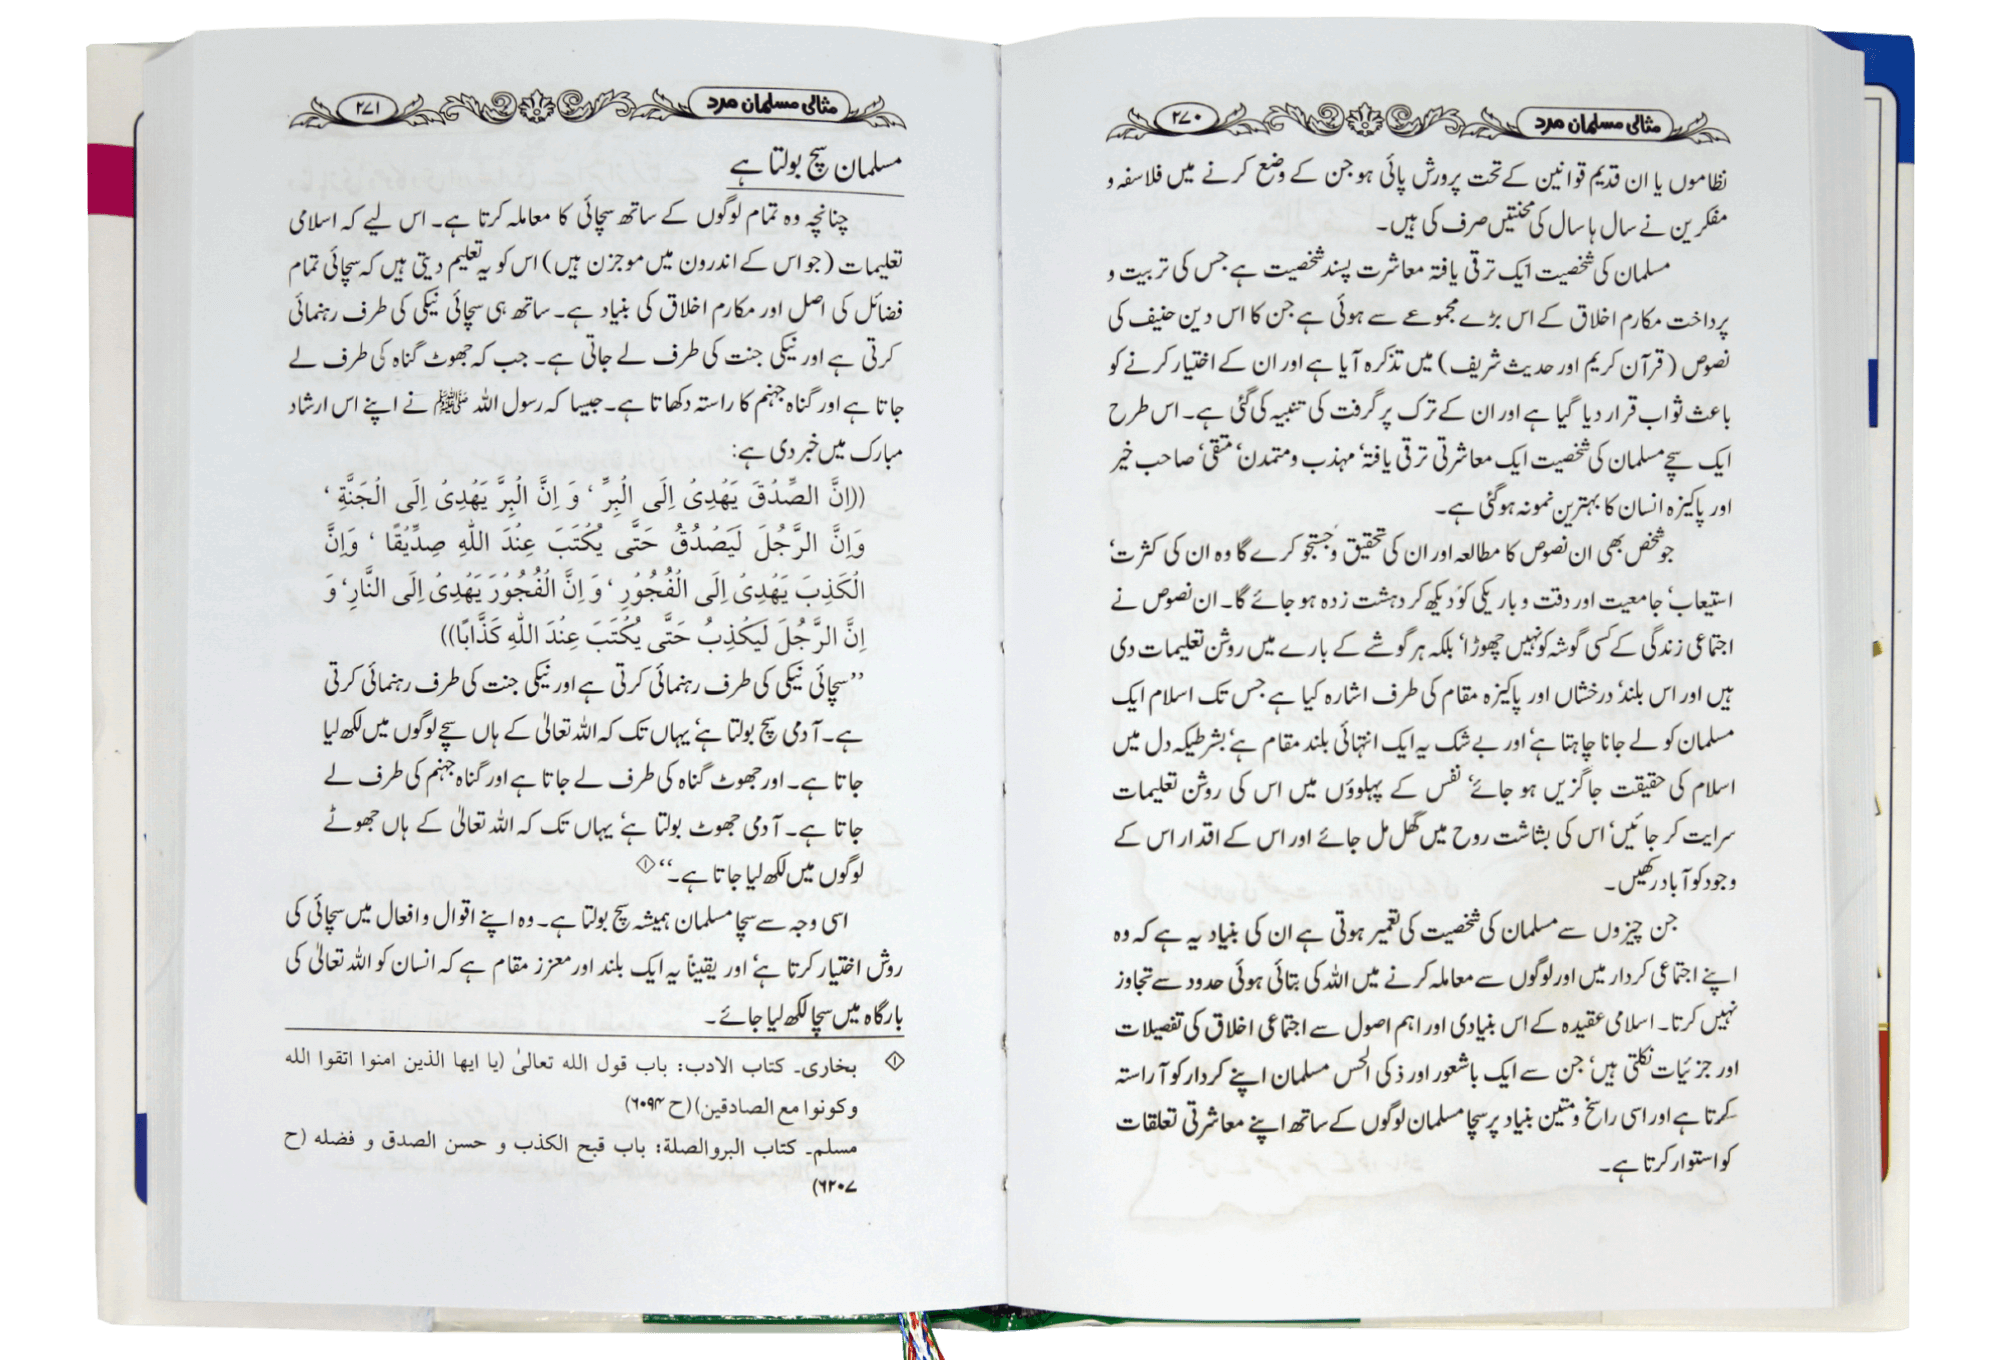 مثالی مسلمان مرد ۲۷۰
نظاموں یا ان قدیم قوانین کے تحت پرورش پائی ہو جن کے وضع کرنے میں فلاسفہ و
مفکرین نے سال ہا سال کی محنتیں صرف کی ہیں۔
مسلمان کی شخصیت ایک ترقی یافتہ معاشرت پسند شخصیت ہے جس کی تربیت و
پرداخت مکارم اخلاق کے اس بڑے مجموعے سے ہوئی ہے جن کا اس دین حنیف کی
نصوص (قرآن کریم اور حدیث شریف) میں تذکرہ آیا ہے اور ان کے اختیار کرنے کو
باعث ثواب قرار دیا گیا ہے اور ان کے ترک پر گرفت کی تنبیہ کی گئی ہے۔ اس طرح
ایک سچے مسلمان کی شخصیت ایک معاشرتی ترقی یافتہ‘ مہذب و متمدن‘ متقی‘ صاحب خیر
اور پاکیزہ انسان کا بہترین نمونہ ہو گئی ہے۔
جو شخص بھی ان نصوص کا مطالعہ اور ان کی تحقیق و جستجو کرے گا وہ ان کی کثرت‘
استیعاب‘ جامعیت اور دقت و باریکی کو دیکھ کر دہشت زدہ ہو جائے گا۔ ان نصوص نے
اجتماعی زندگی کے کسی گوشہ کو نہیں چھوڑا‘ بلکہ ہر گوشے کے بارے میں روشن تعلیمات دی
ہیں اور اس بلند‘ درخشاں اور پاکیزہ مقام کی طرف اشارہ کیا ہے جس تک اسلام ایک
مسلمان کو لے جانا چاہتا ہے‘ اور بے شک یہ ایک انتہائی بلند مقام ہے‘ بشرطیکہ دل میں
اسلام کی حقیقت جاگزیں ہو جائے‘ نفس کے پہلوؤں میں اس کی روشن تعلیمات
سرایت کر جائیں‘ اس کی بشاشت روح میں گھل مل جائے اور اس کے اقدار اس کے
وجود کو آباد رکھیں۔
جن چیزوں سے مسلمان کی شخصیت کی تعمیر ہوتی ہے ان کی بنیاد یہ ہے کہ وہ
اپنے اجتماعی کردار میں اور لوگوں سے معاملہ کرنے میں اللہ کی بتائی ہوئی حدود سے تجاوز
نہیں کرتا۔ اسلامی عقیدہ کے اس بنیادی اور اہم اصول سے اجتماعی اخلاق کی تفصیلات
اور جزئیات نکلتی ہیں‘ جن سے ایک باشعور اور ذکی الحس مسلمان اپنے کردار کو آراستہ
کرتا ہے اور اسی راسخ و متین بنیاد پر سچا مسلمان لوگوں کے ساتھ اپنے معاشرتی تعلقات
کو استوار کرتا ہے۔
مثالی مسلمان مرد ۲۷۱
مسلمان سچ بولتا ہے
چنانچہ وہ تمام لوگوں کے ساتھ سچائی کا معاملہ کرتا ہے۔ اس لیے کہ اسلامی
تعلیمات (جو اس کے اندرون میں موجزن ہیں) اس کو یہ تعلیم دیتی ہیں کہ سچائی تمام
فضائل کی اصل اور مکارم اخلاق کی بنیاد ہے۔ ساتھ ہی سچائی نیکی کی طرف رہنمائی
کرتی ہے اور نیکی جنت کی طرف لے جاتی ہے۔ جب کہ جھوٹ گناہ کی طرف لے
جاتا ہے اور گناہ جہنم کا راستہ دکھاتا ہے۔ جیسا کہ رسول اللہ ﷺ نے اپنے اس ارشاد
مبارک میں خبر دی ہے:
((اِنَّ الصِّدْقَ يَهْدِىْ اِلَى الْبِرِّ ‘ وَ اِنَّ الْبِرَّ يَهْدِىْ اِلَى الْجَنَّةِ ‘
وَاِنَّ الرَّجُلَ لَيَصْدُقُ حَتَّى يُكْتَبَ عِنْدَ اللّٰهِ صِدِّيْقًا ‘ وَاِنَّ
الْكَذِبَ يَهْدِىْ اِلَى الْفُجُوْرِ ‘ وَ اِنَّ الْفُجُوْرَ يَهْدِىْ اِلَى النَّارِ‘ وَ
اِنَّ الرَّجُلَ لَيَكْذِبُ حَتَّى يُكْتَبَ عِنْدَ اللّٰهِ كَذَّابًا))
’’سچائی نیکی کی طرف رہنمائی کرتی ہے اور نیکی جنت کی طرف رہنمائی کرتی
ہے۔ آدمی سچ بولتا ہے‘ یہاں تک کہ اللہ تعالیٰ کے ہاں سچے لوگوں میں لکھ لیا
جاتا ہے۔ اور جھوٹ گناہ کی طرف لے جاتا ہے اور گناہ جہنم کی طرف لے
جاتا ہے۔ آدمی جھوٹ بولتا ہے‘ یہاں تک کہ اللہ تعالیٰ کے ہاں جھوٹے
لوگوں میں لکھ لیا جاتا ہے۔‘‘ ۱
اسی وجہ سے سچا مسلمان ہمیشہ سچ بولتا ہے۔ وہ اپنے اقوال و افعال میں سچائی کی
روش اختیار کرتا ہے‘ اور یقیناً یہ ایک بلند اور معزز مقام ہے کہ انسان کو اللہ تعالیٰ کی
بارگاہ میں سچا لکھ لیا جائے۔
۱ بخاری۔ کتاب الادب: باب قول الله تعالیٰ (یا ایها الذین امنوا اتقوا الله
وکونوا مع الصادقین) (ح ۶۰۹۴)
مسلم۔ کتاب البروالصلة: باب قبح الکذب و حسن الصدق و فضله (ح
۲۶۰۷)